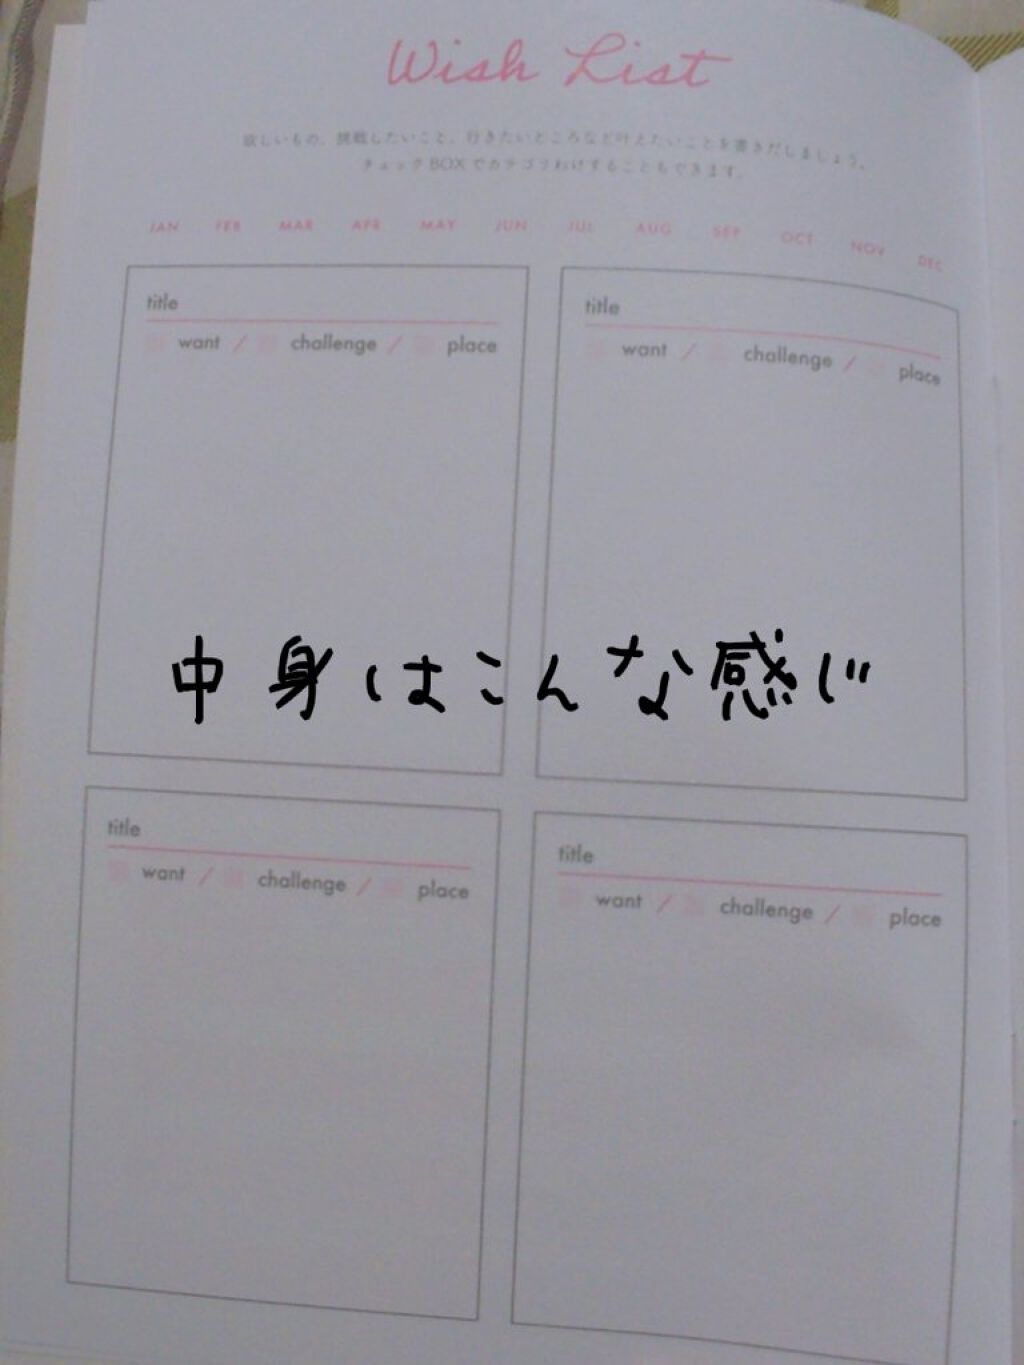 Wish List
欲しいもの、挑戦したいこと、行きたいところなど叶えたいことを書きだしましょう。
チェックBOXでカテゴリわけすることもできます。
JAN FEB MAR APR MAY JUN JUL AUG SEP OCT NOV DEC
title
want / challenge / place
title
want / challenge / place
中身はこんな感じ
title
want / challenge / place
title
want / challenge / place